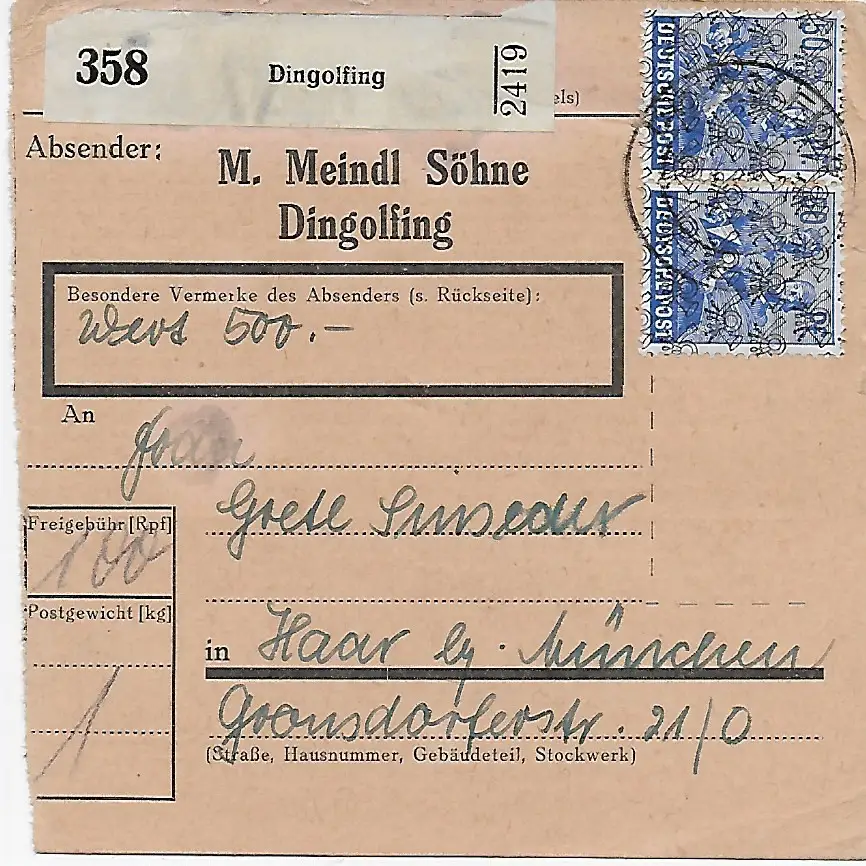 358 Dingolfing 2419
els)
Absender:
M. Meindl Söhne
Dingolfing
Besondere Vermerke des Absenders (s. Rückseite):
Wert 500.-
An
Frau
Grete
in Haar b/ München
Gronsdorferstr. 21/0
(Straße, Hausnummer, Gebäudeteil, Stockwerk)
Freigebühr [Rpf]
100
Postgewicht [kg]
1
50
DEUTSCHE POST
50
DEUTSCHE POST